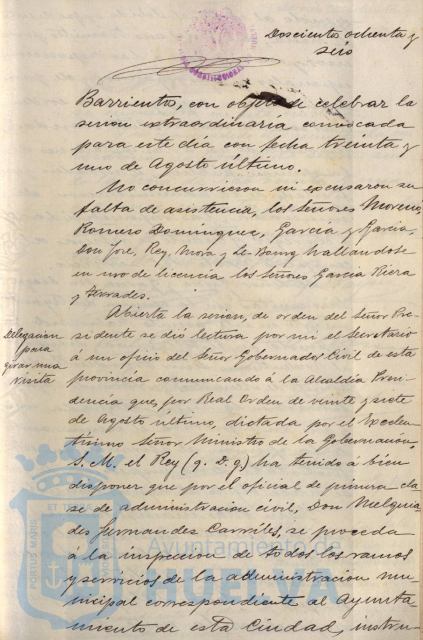 Doscientos ochenta y
seis
Barrientos, con objeto de celebrar la
sesion extraordinaria convocada
para este dia con fecha treinta y
uno de Agosto último.
No concurrieron ni excusaron su
falta de asistencia, los señores Moreno,
Romero Dominguez, García y García,
Don José, Rey, Mora y Le Bourg hallandose
en uso de licencia los Señores García Riera
y Terrades.
Abierta la sesion, de orden del Señor Pre-
sidente se dió lectura por mi el Secretario
á un oficio del Señor Gobernador Civil de esta
provincia comunicando á la Alcaldía Presi-
dencia que, por Real Orden de veinte y siete
de Agosto último, dictada por el Excelen-
tísimo Señor Ministro de la Gobernacion,
S. M. el Rey (q. D. g.) ha tenido á bien
disponer que por el oficial de primera cla-
se de administracion civil, Don Melquia-
des Fernandez Carriles, se proceda
á la inspeccion de todos los ramos
y servicios de la administracion mu-
nicipal correspondiente al Ayunta-
miento de esta Ciudad, instru-
Delegacion
para
girar una
visita
PORTUS MARIS
ET TE
Ayuntamiento de
HUELVA